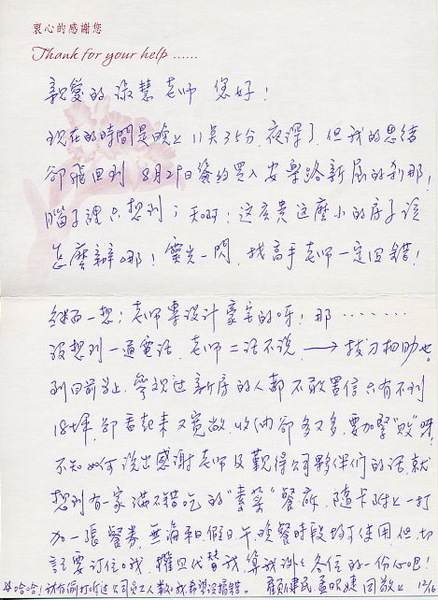 衷心的感謝您
Thank for your help ......
親愛的淑慧老師 您好！
現在的時間是晚上11點35分，夜深了，但我的思緒
卻飛回到8月29日簽約買入安樂路新居的剎那！
腦子裡只想到；天啊！這麼貴這麼小的房子該
怎麼辦哪！靈光一閃，找高手老師一定回錯！
細而一想；老師專設計豪宅的呀！那．．．．．．
沒想到一通電話，老師二話不說，→拔刀相助也。
到目前為止，參觀过新房的人都不敢置信只有不到
18坪，卻看起來又寬敞，收納卻多又多，要加緊"敗"呀
不知如何說出感謝老師及觀得公司夥伴們的話，就
想到有一家滿不錯吃的"素菜"餐廳，隨卡附上一打
加一張餐券，無論平日假日午、晚餐時段均可使用但切
記要訂位哦，權且代替我算我謝各位的一份心吧！
哈哈！我有偷打听过公司員工人數，我希望沒搞錯。 顧健民 孟昭婕 同敬上 12/16